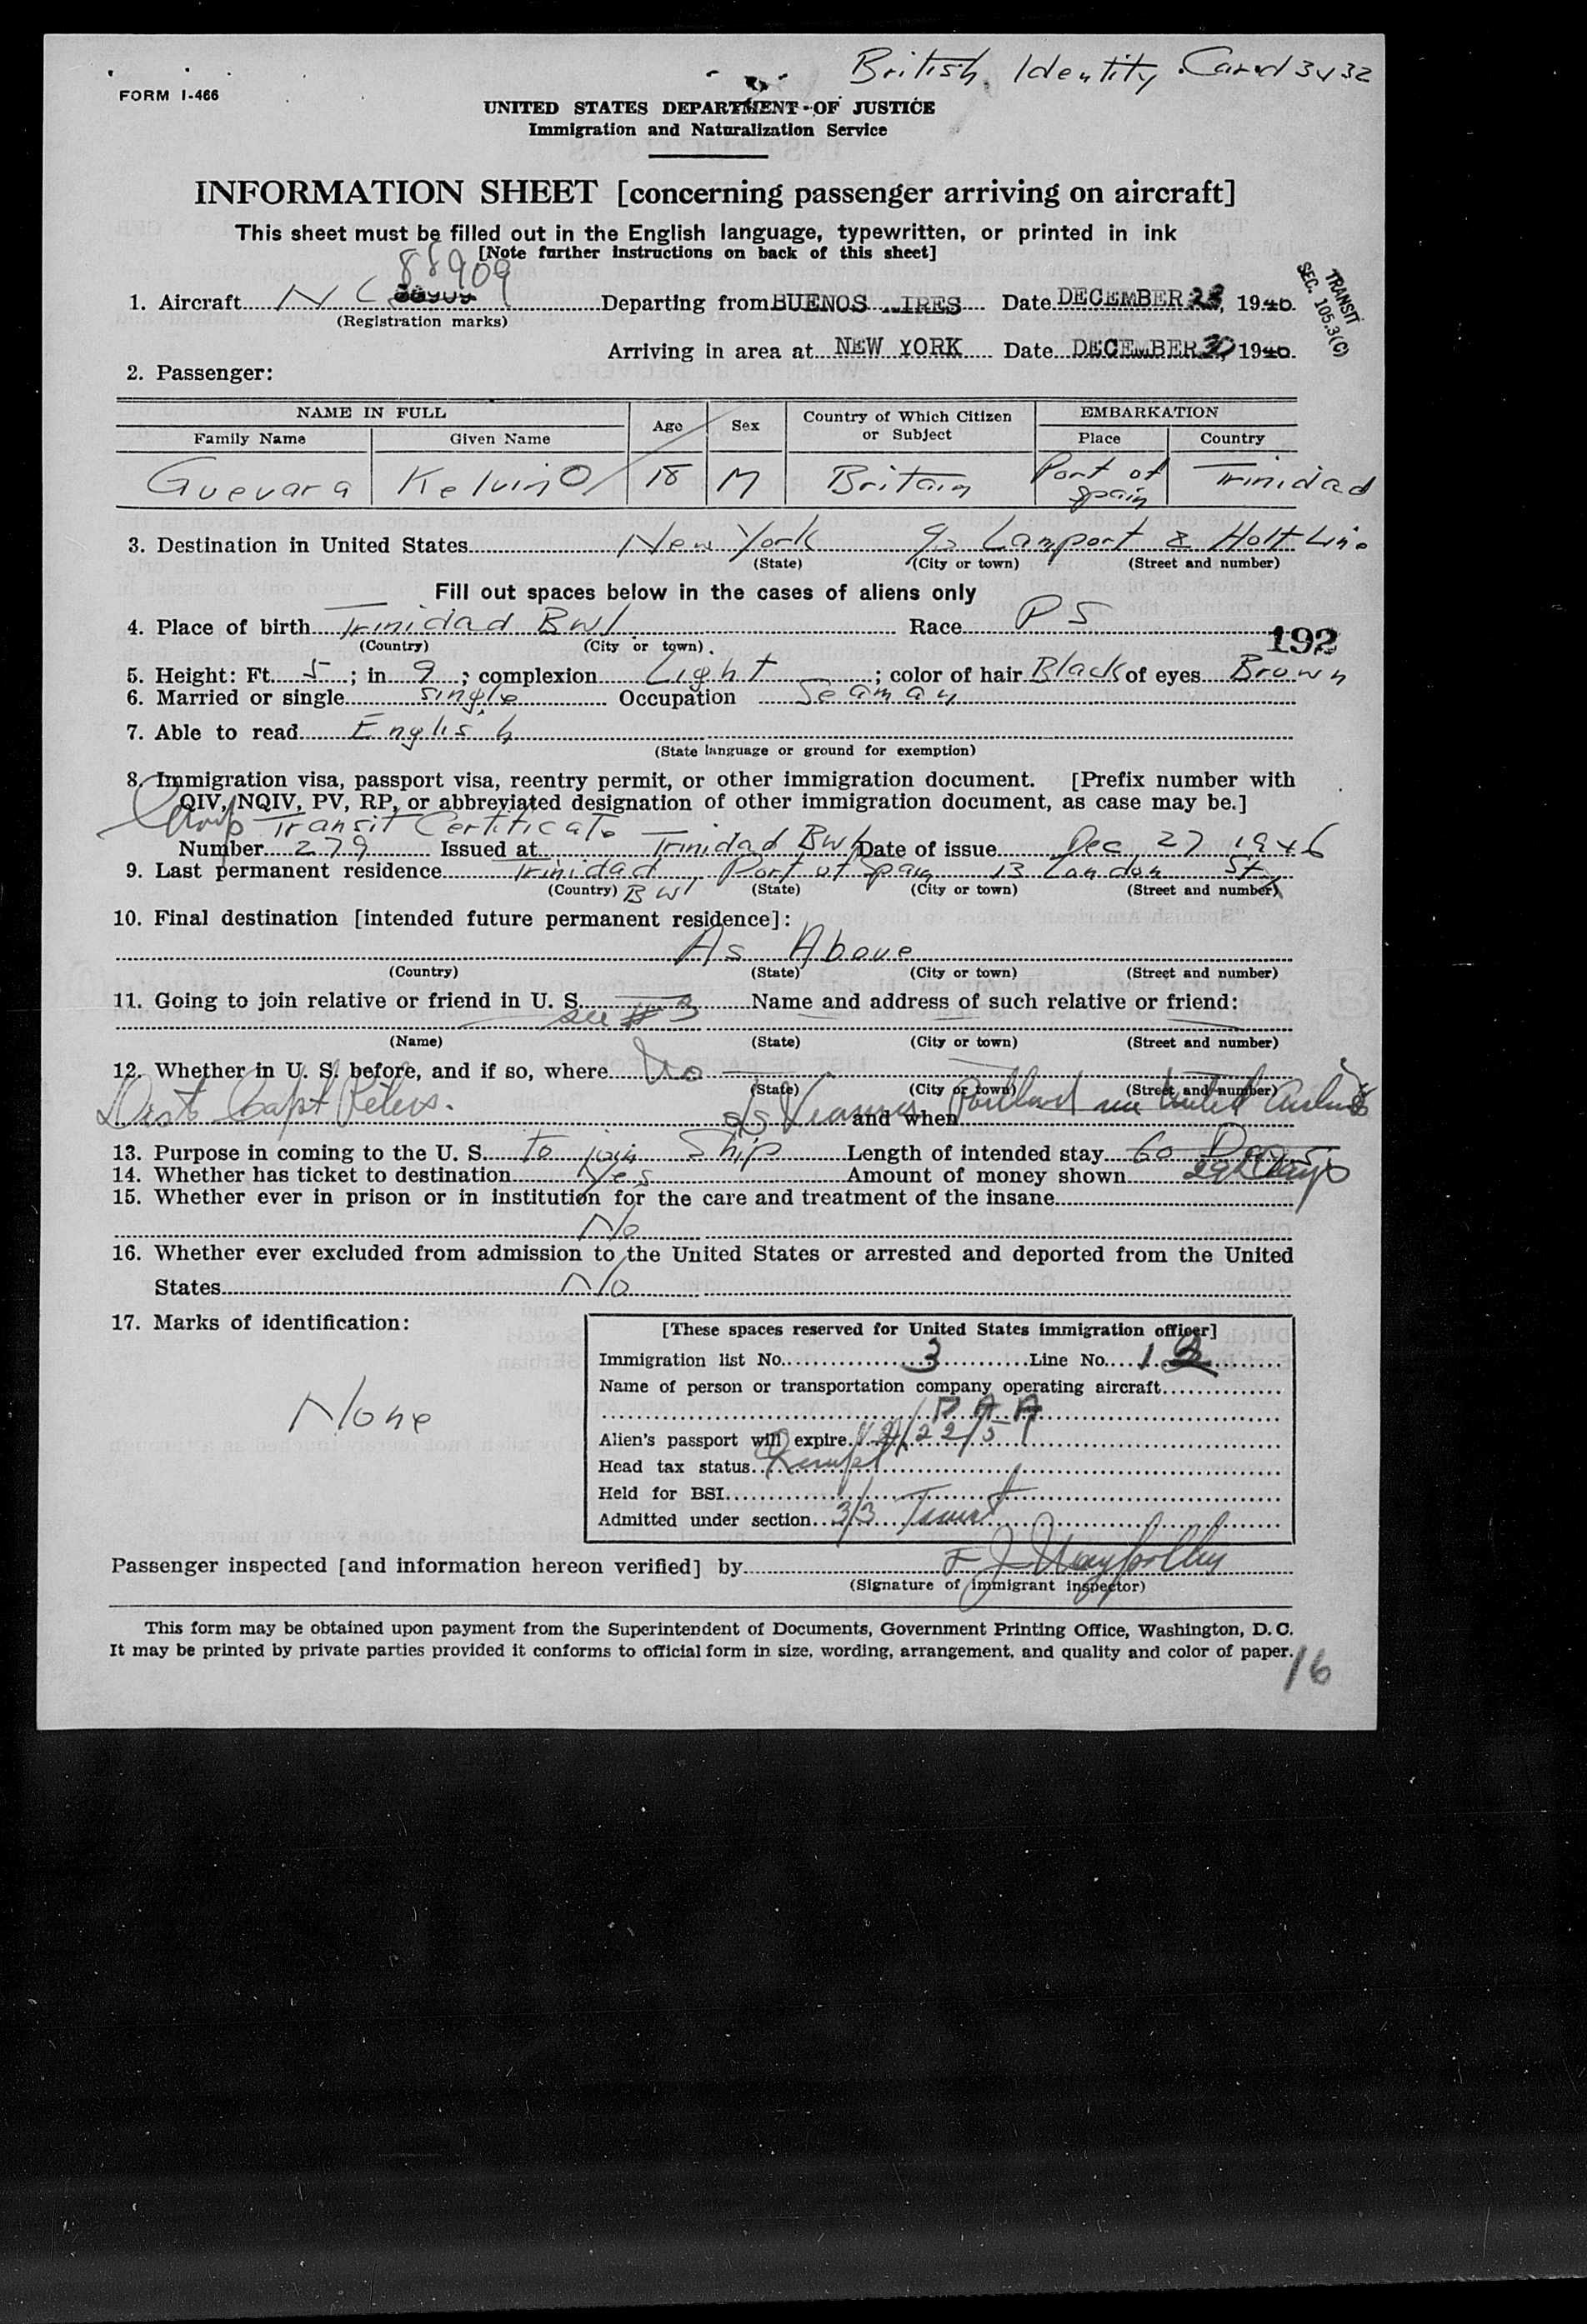 British Identity Card 3432
FORM I-466
UNITED STATES DEPARTMENT OF JUSTICE
Immigration and Naturalization Service
INFORMATION SHEET [concerning passenger arriving on aircraft]
This sheet must be filled out in the English language, typewritten, or printed in ink
[Note further instructions on back of this sheet]
88909
1. Aircraft NC 88909 Departing from BUENOS IRES Date DECEMBER 28, 1946
(Registration marks)
TRANSIT
SEC. 105.3(C)
Arriving in area at NEW YORK Date DECEMBER 30, 1946
2. Passenger:
NAME IN FULL Age Sex Country of Which Citizen or Subject EMBARKATION
Family Name Given Name Place Country
Guevara Kelvin O 18 M Britain Port of Spain Trinidad
3. Destination in United States New York c/o Lamport & Holt Line
(State) (City or town) (Street and number)
Fill out spaces below in the cases of aliens only
4. Place of birth Trinidad BWI Race PS
(Country) (City or town)
192
5. Height: Ft. 5; in 9; complexion Light; color of hair Black of eyes Brown
6. Married or single single Occupation Seaman
7. Able to read English
(State language or ground for exemption)
8. Immigration visa, passport visa, reentry permit, or other immigration document. [Prefix number with
QIV, NQIV, PV, RP, or abbreviated designation of other immigration document, as case may be.]
Group Transit Certificate
Number 279 Issued at Trinidad BWI Date of issue Dec 27 1946
9. Last permanent residence Trinidad Port of Spain 13 London St
(Country) BWI (State) (City or town) (Street and number)
10. Final destination [intended future permanent residence]:
As Above
(Country) (State) (City or town) (Street and number)
11. Going to join relative or friend in U. S. Name and address of such relative or friend:
see #3
(Name) (State) (City or town) (Street and number)
12. Whether in U. S. before, and if so, where No
(State) (City or town) (Street and number)
Dest. Capt Peters. S/S Portland via United Airlines
and when
13. Purpose in coming to the U. S. To join Ship Length of intended stay 60 Days
14. Whether has ticket to destination Yes Amount of money shown
29 Days
15. Whether ever in prison or in institution for the care and treatment of the insane
No
16. Whether ever excluded from admission to the United States or arrested and deported from the United
States No
17. Marks of identification:
None
[These spaces reserved for United States immigration officer]
Immigration list No. 3 Line No. 1
Name of person or transportation company operating aircraft
PAA
Alien's passport will expire 12/22/51
Head tax status Exempt
Held for BSI
Admitted under section 3/3 Transit
Passenger inspected [and information hereon verified] by
(Signature of immigrant inspector)
This form may be obtained upon payment from the Superintendent of Documents, Government Printing Office, Washington, D. C.
It may be printed by private parties provided it conforms to official form in size, wording, arrangement, and quality and color of paper.
16